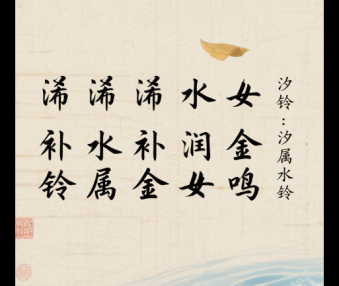 汐铃:汐属水铃
女金鸣
水润女
浠补金
浠水属
浠补铃